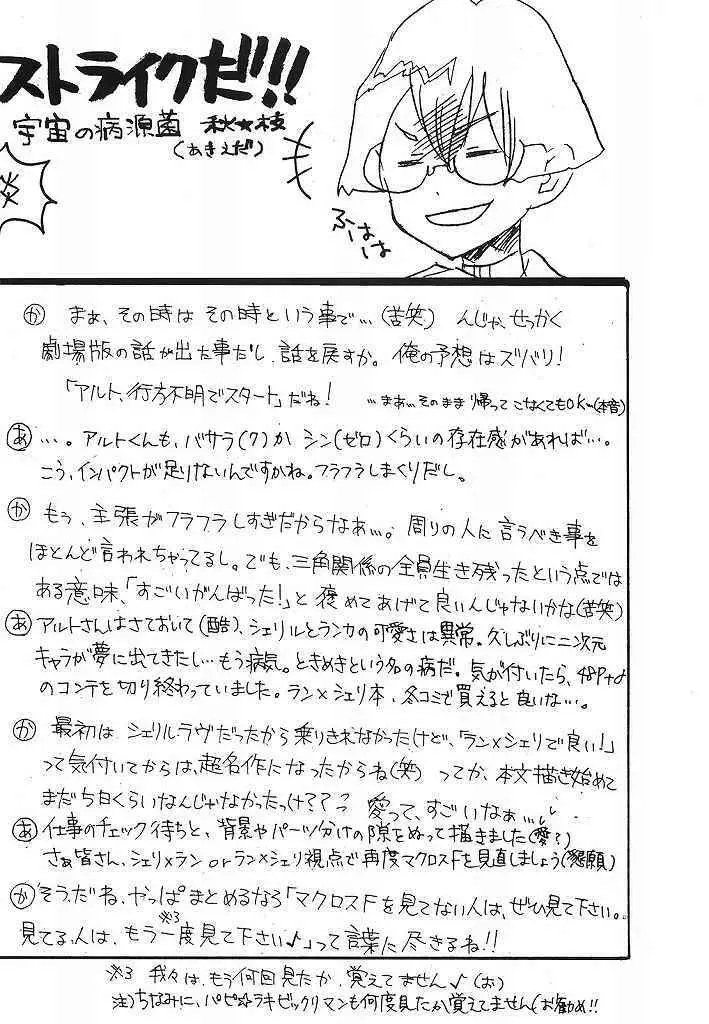 ストライクだ!!!
宇宙の病源菌 秋☆枝
(あきえだ)
炎
ふーはははは
か まぁ、その時はその時という事で…(苦笑) んじゃ、せっかく
劇場版の話が出た事だし、話を戻すか。俺の予想はズバリ!
「アルト、行方不明でスタート」だね! …まぁ…そのまま帰ってこなくてもOK…(本音)
あ …。アルトくんも、バサラ(7)か シン(ゼロ)くらいの存在感があれば…。
こう、インパクトが足りないんですかね。フラフラしまくりだし。
か もぅ、主張がフラフラしすぎだからなぁ…。周りの人に言うべき事を
ほとんど言われちゃってるし。でも、三角関係の全員生き残ったという点では
ある意味、「すごいがんばった!」と褒めてあげて良いんじゃないかな(苦笑)
あ アルトさんはさておいて(酷)、シェリルとランカの可愛さは異常。久しぶりに二次元
キャラが夢に出てきたし…もう病気。ときめきという名の病だ。気が付いたら、48P+α
のコンテを切り終わっていました。ラン×シェリ本、冬コミで買えると良いな…。
か 最初はシェリルラヴだったから乗りきれなかったけど、「ラン×シェリで良い!」
って気付いてからは、超名作になったからね(笑) ってか、本文描き始めて
まだ5日くらいなんじゃなかったっけ??? 愛って、すごいなぁ…
あ 仕事のチェック待ちと、背景やパーツ分けの隙をぬって描きました(愛?)
さぁ皆さん、シェリ×ラン or ラン×シェリ視点で再度マクロスFを見直しましょう(懇願)
か そうだね、やっぱまとめるなら「マクロスFを見てない人は、ぜひ見て下さい。
見てる人は、もう一度見て下さい♪」って言葉に尽きるね!!
※3
※3 我々は、もう何回見たか、覚えてません♪(お)
注)ちなみに、パピ☆ラキビックリマンも何度見たか覚えてません(お勧め!!